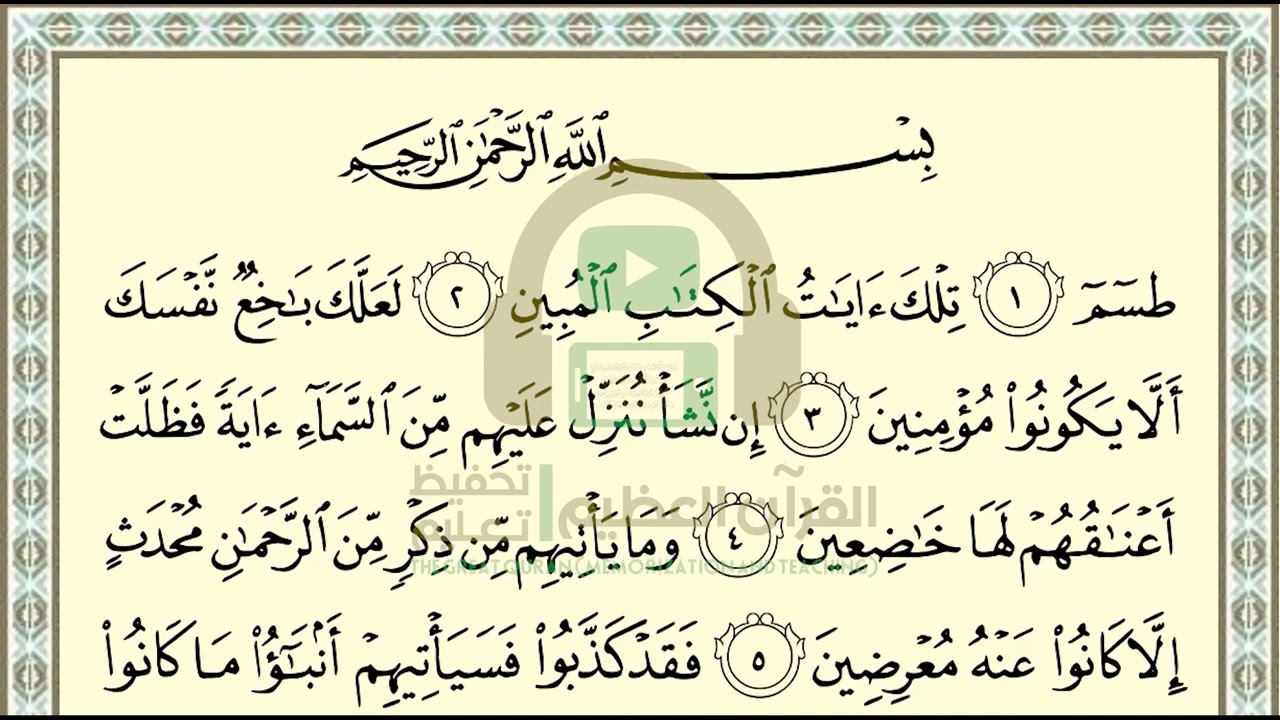 بِسْمِ ٱللَّهِ ٱلرَّحْمَٰنِ ٱلرَّحِيمِ
طسٓمٓ ١ تِلْكَ ءَايَٰتُ ٱلْكِتَٰبِ ٱلْمُبِينِ ٢ لَعَلَّكَ بَٰخِعٌ نَّفْسَكَ
أَلَّا يَكُونُوا۟ مُؤْمِنِينَ ٣ إِن نَّشَأْ نُنَزِّلْ عَلَيْهِم مِّنَ ٱلسَّمَآءِ ءَايَةً فَظَلَّتْ
القرآن العظيم تحفيظ تعليم
أَعْنَٰقُهُمْ لَهَا خَٰضِعِينَ ٤ وَمَا يَأْتِيهِم مِّن ذِكْرٍ مِّنَ ٱلرَّحْمَٰنِ مُحْدَثٍ
THE GREAT QURAN (MEMORIZATION AND TEACHING)
إِلَّا كَانُوا۟ عَنْهُ مُعْرِضِينَ ٥ فَقَدْ كَذَّبُوا۟ فَسَيَأْتِيهِمْ أَنۢبَٰٓؤُا۟ مَا كَانُوا۟